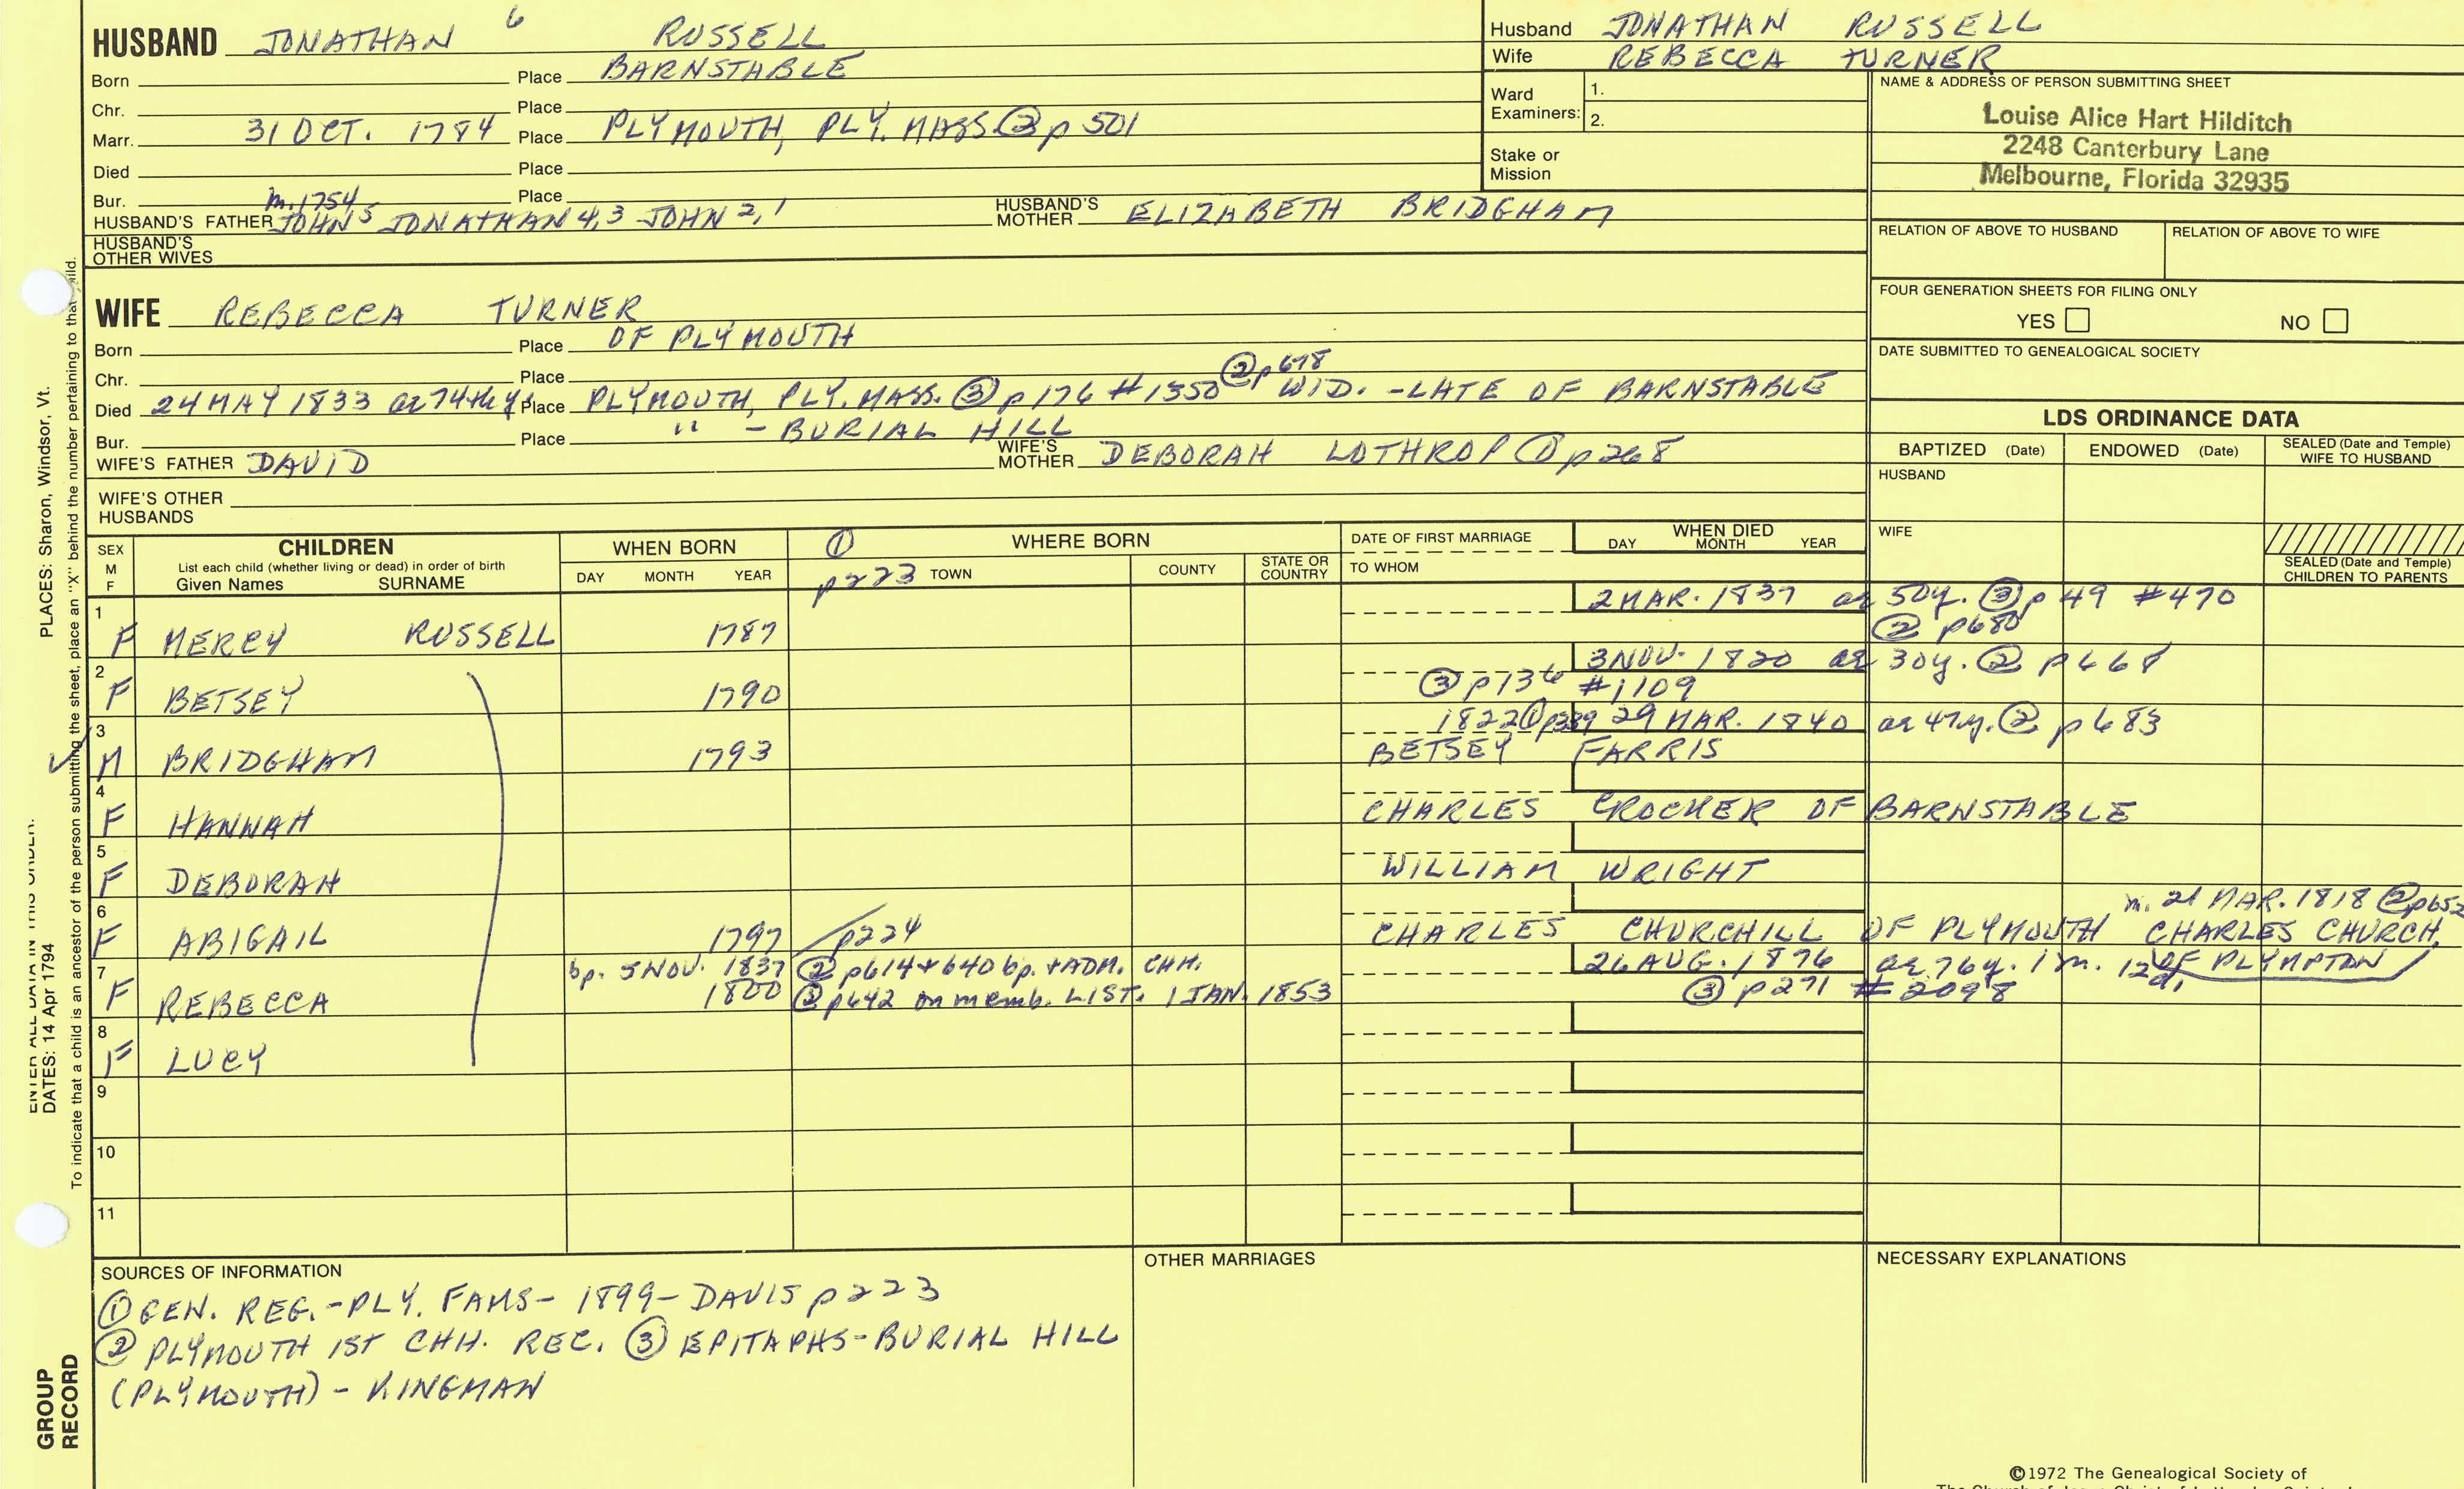 HUSBAND JONATHAN 6 RUSSELL
Born Place BARNSTABLE
Chr. Place
Marr. 31 OCT. 1784 Place PLYMOUTH, PLY. MASS. ② p 501
Died Place
Bur. Place
m. 1754
HUSBAND'S FATHER JOHN 5 JONATHAN 4,3 JOHN 2,1 HUSBAND'S MOTHER ELIZABETH BRIDGHAM
HUSBAND'S OTHER WIVES
Husband JONATHAN RUSSELL
Wife REBECCA TURNER
Ward Examiners: 1.
2.
Stake or Mission
NAME & ADDRESS OF PERSON SUBMITTING SHEET
Louise Alice Hart Hilditch
2248 Canterbury Lane
Melbourne, Florida 32935
RELATION OF ABOVE TO HUSBAND RELATION OF ABOVE TO WIFE
FOUR GENERATION SHEETS FOR FILING ONLY
YES NO
DATE SUBMITTED TO GENEALOGICAL SOCIETY
WIFE REBECCA TURNER
Born Place OF PLYMOUTH
Chr. Place
② p 678
Died 24 MAY 1833 ae 74th y. Place PLYMOUTH, PLY. MASS. ③ p 176 #1350 WID. - LATE OF BARNSTABLE
Bur. Place " - BURIAL HILL
WIFE'S FATHER DAVID WIFE'S MOTHER DEBORAH LOTHROP ① p 268
WIFE'S OTHER HUSBANDS
LDS ORDINANCE DATA
BAPTIZED (Date) ENDOWED (Date) SEALED (Date and Temple) WIFE TO HUSBAND
HUSBAND
WIFE
SEALED (Date and Temple) CHILDREN TO PARENTS
SEX M F
CHILDREN
List each child (whether living or dead) in order of birth
Given Names SURNAME
WHEN BORN
DAY MONTH YEAR
① p 223
WHERE BORN
TOWN COUNTY STATE OR COUNTRY
DATE OF FIRST MARRIAGE
TO WHOM
WHEN DIED
DAY MONTH YEAR
1 F MERCY RUSSELL 1787 2 MAR. 1837 ae 50y. ③ p 49 #470
② p680
2 F BETSEY 1790 3 NOV. 1820 ae 30y. ② p 668
③ p136 #1109
3 M BRIDGHAM 1793 1822 ① p289 29 MAR. 1840 ae 47y. ② p 683
BETSEY FARRIS
4 F HANNAH CHARLES CROCKER OF BARNSTABLE
5 F DEBORAH WILLIAM WRIGHT
6 F ABIGAIL 1797 p224 CHARLES CHURCHILL OF PLYMOUTH
m. 21 MAR. 1818 ② p652
CHARLES CHURCH,
OF PLYMPTON
7 F REBECCA bp. 5 NOV. 1837 ② p614 + 640 bp. + ADM. CHH. 26 AUG. 1876 ae 76y. 1m. 12d.
1800 ② p642 on memb. LIST. 1 JAN. 1853 ③ p271 #2098
8 F LUCY
9
10
11
SOURCES OF INFORMATION
① GEN. REG. - PLY. FAMS - 1899 - DAVIS p 223
② PLYMOUTH 1ST CHH. REC. ③ EPITAPHS - BURIAL HILL
(PLYMOUTH) - KINGMAN
OTHER MARRIAGES
NECESSARY EXPLANATIONS
©1972 The Genealogical Society of
PLACES: Sharon, Windsor, Vt.
DATES: 14 Apr 1794
To indicate that a child is an ancestor of the person submitting the sheet, place an "X" behind the number pertaining to that child.
GROUP
RECORD